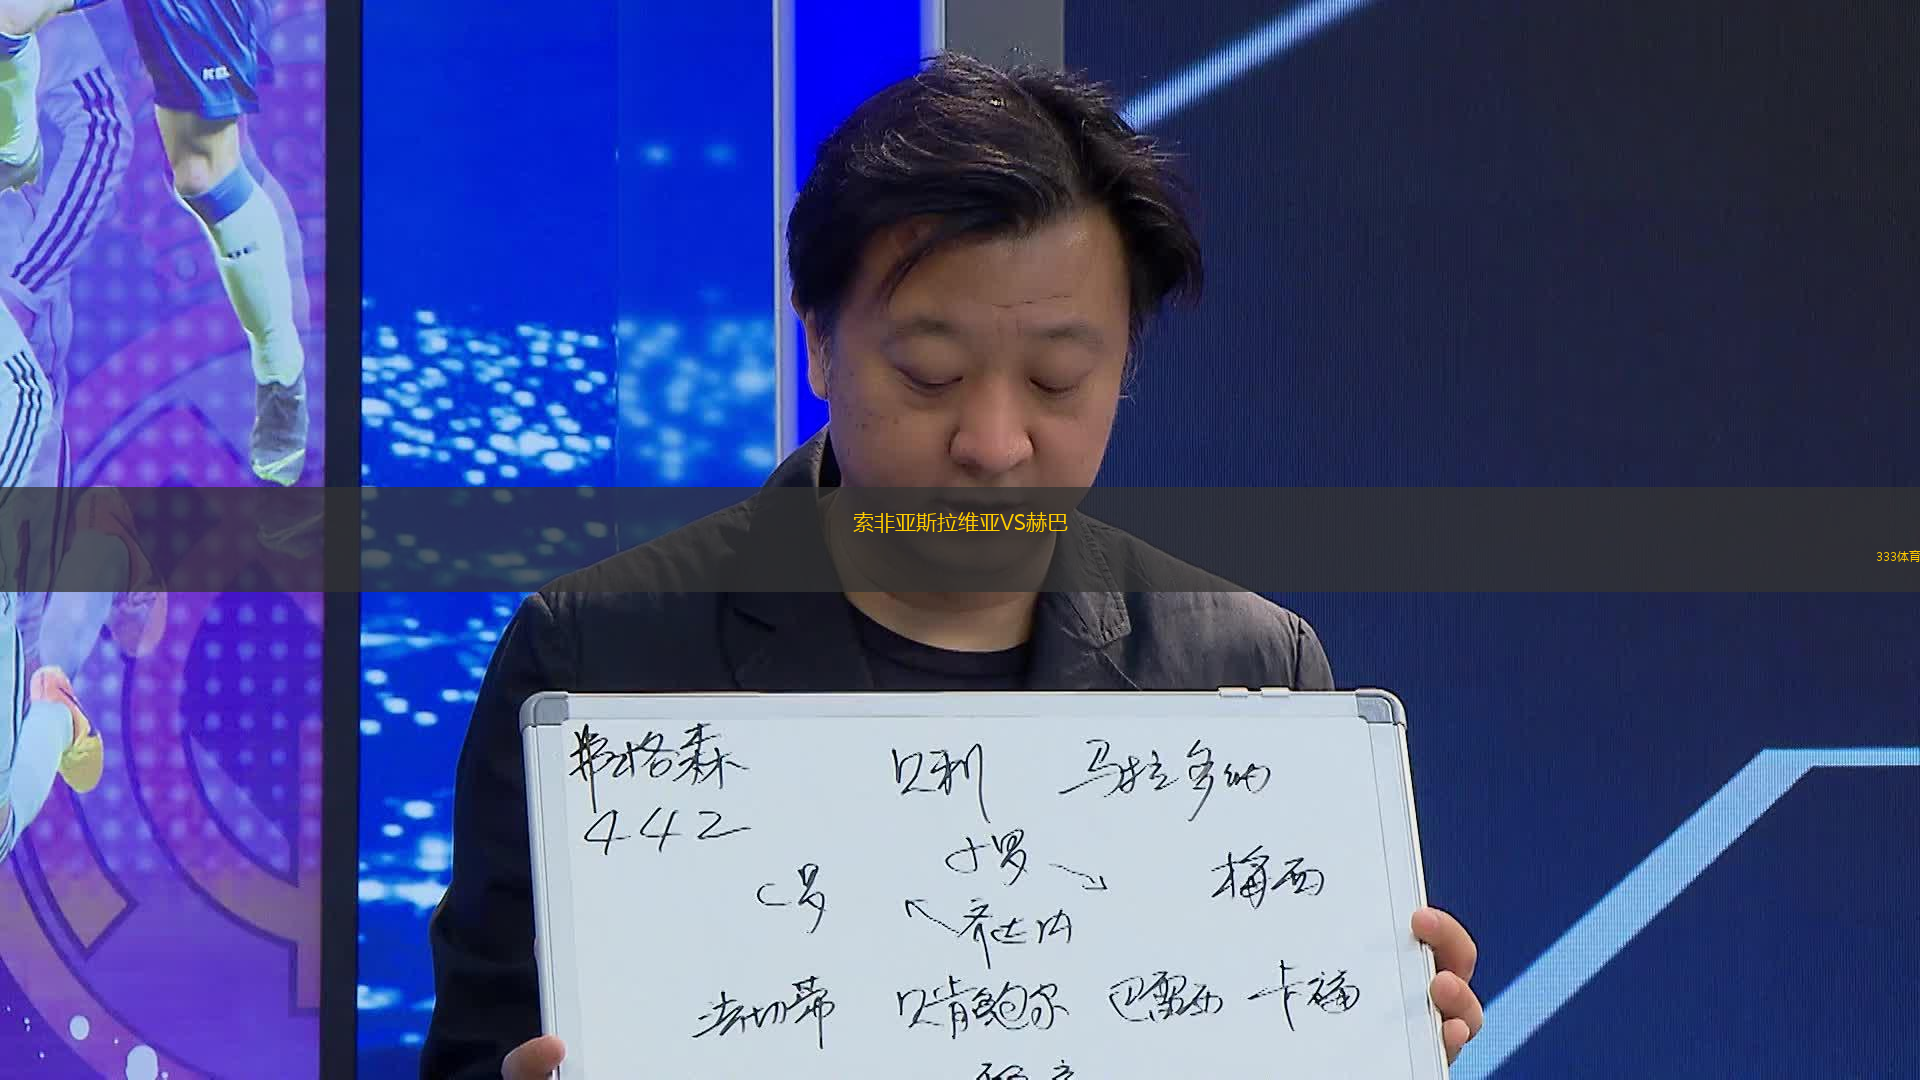 索非亚斯拉维亚VS赫巴
333体育
弗格森 贝利 马拉多纳
442
小罗
C罗 梅西
齐达内
法切蒂 贝肯鲍尔 巴雷西 卡福